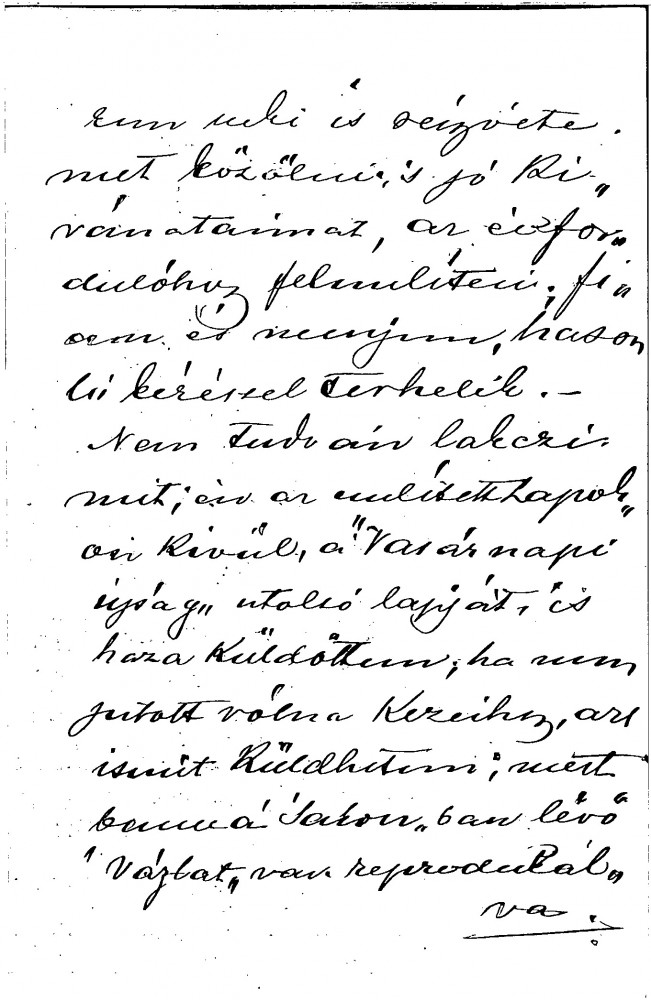 rem neki is részvéte.
met közölni, 's jó ki„
vánataimat, az évfor„
dulóhoz felemlíteni; fi„
am és menyem, hason
ló kéréssel terhelik. —
Nem tudván lakczi.
mit; én az említett lapok„
on kivül, a "Vasárnapi
újság„ utolsó lapját, is
haza küldöttem; ha nem
jutott vólna kezeihez, azt
ismét küldhetem; mert
benne á Salon„ban lévő
"Vázlat„ van reprodukál„
va.